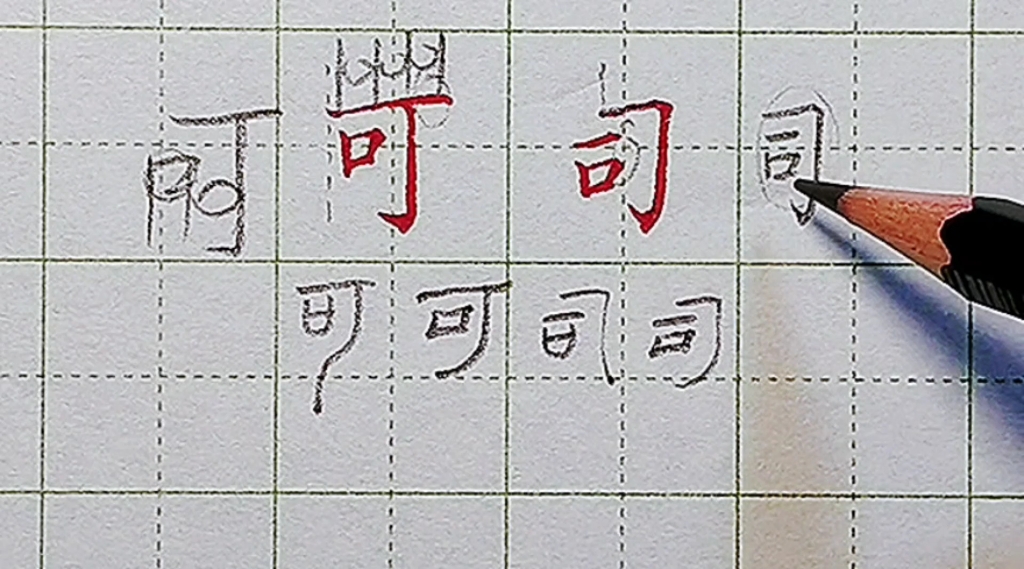 可 可 司 司
可 可 司 司